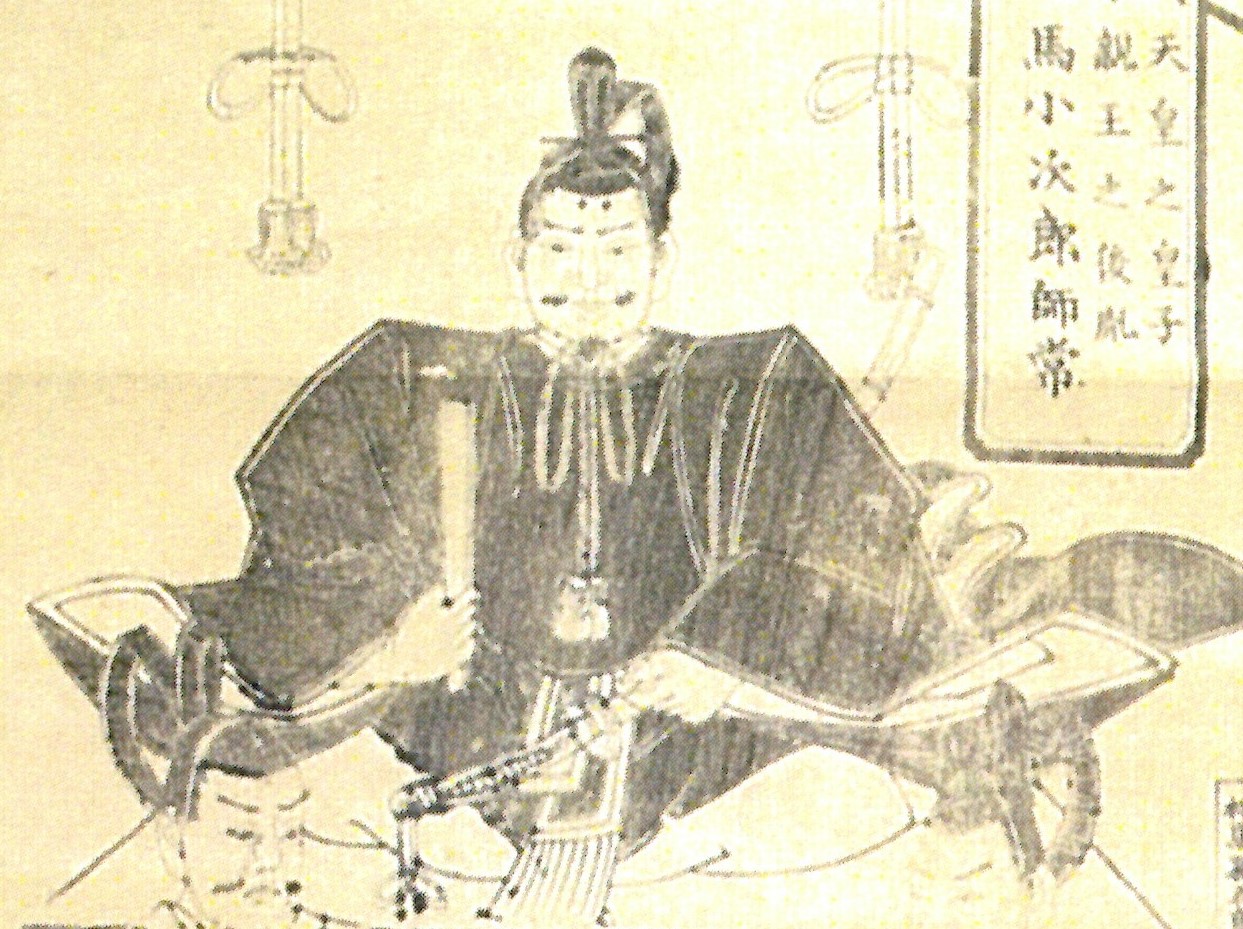 天皇之皇子
親王之後胤
馬小次郎師常